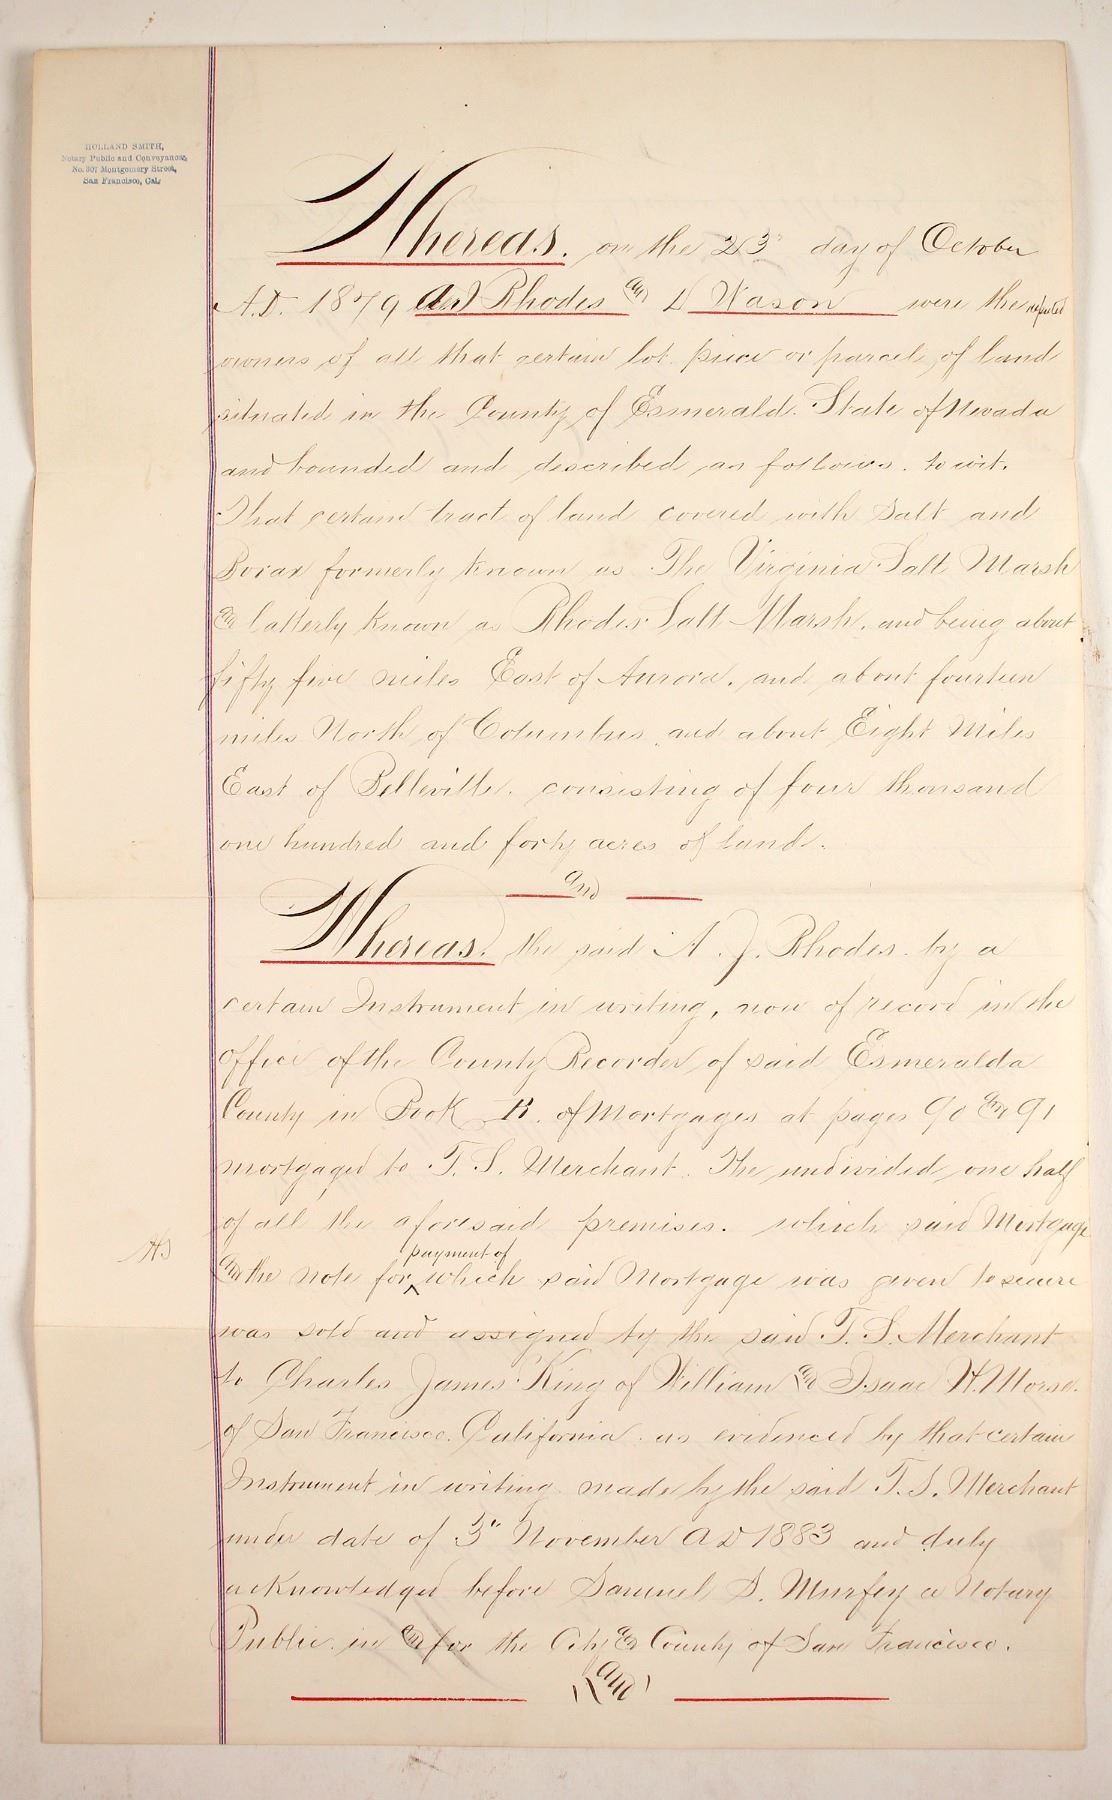 HOLLAND SMITH,
Notary Public and Conveyancer,
No. 307 Montgomery Street,
San Francisco, Cal.
Whereas. on the 23" day of October
A.D. 1879 Rhodes and D Wason were the reputed
owners of all that certain lot piece or parcel of land
situated in the County of Esmerald. State of Nevada
and bounded and described as follows. to wit.
That certain tract of land covered with Salt and
Borax formerly known as The Virginia Salt Marsh
and latterly known as Rhodes Salt Marsh. and being about
fifty five miles East of Aurora. and about fourteen
miles North of Columbus, and about Eight Miles
East of Belleville. consisting of four thousand
one hundred and forty acres of land.
and
Whereas. the said A. J. Rhodes by a
certain Instrument in writing, now of record in the
office of the County Recorder of said Esmeralda
County in Book B. of Mortgages at pages 90 and 91
mortgaged to T. S. Merchant. The undivided one half
of all the aforesaid premises. which said Mortgage
payment of
HS and the note for which said Mortgage was given to secure
was sold and assigned by the said T. S. Merchant
to Charles James King of William and Isaac H. Morse.
of San Francisco. California. as evidenced by that certain
Instrument in writing made by the said T. S. Merchant
under date of 3" November AD 1883 and duly
acknowledged before Samuel S. Murfey a Notary
Public. in and for the City and County of San Francisco.
and